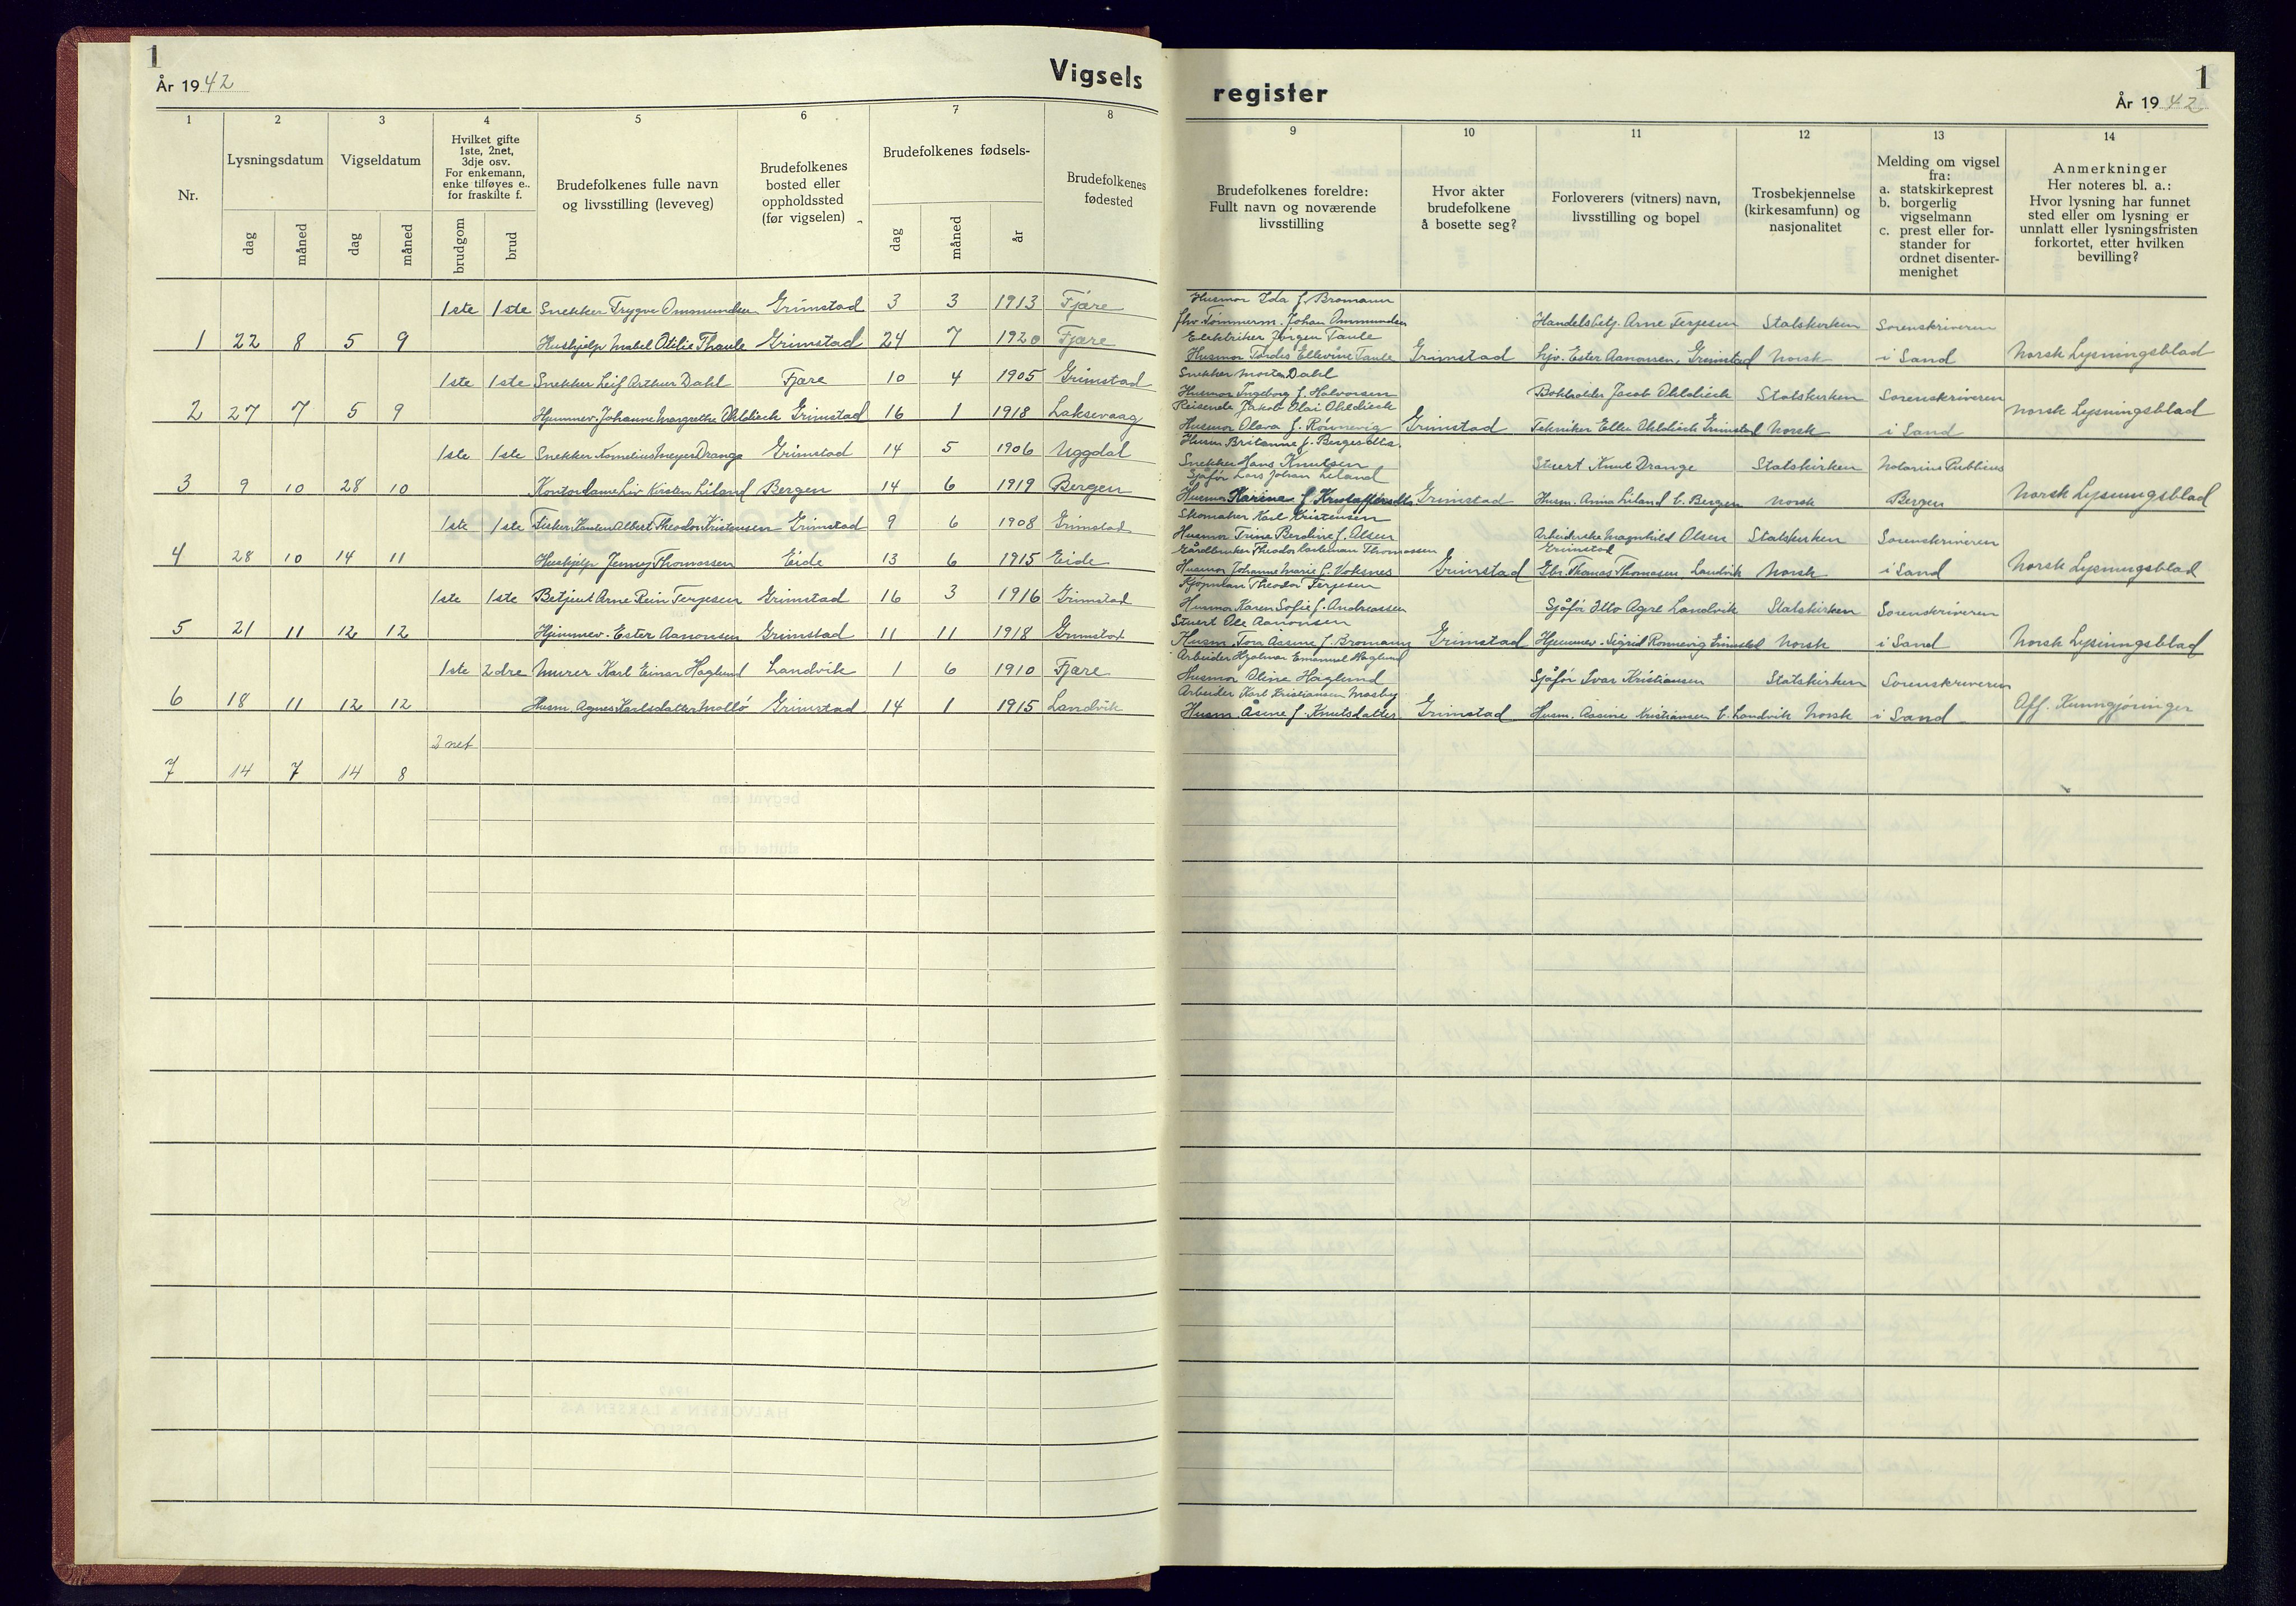 1
År 1942
Vigsels
register
1
År 1942
1
2
3
4
5
6
7
8
9
10
11
12
13
14
Nr.
Lysningsdatum
dag
måned
Vigseldatum
dag
måned
Hvilket gifte
1ste, 2net,
3dje osv.
For enkemann,
enke tilføyes e..
for fraskilte f.
brudgom
brud
Brudefolkenes fulle navn
og livsstilling (leveveg)
Brudefolkenes
bosted eller
oppholdssted
(før vigselen)
Brudefolkenes fødsels-
dag
måned
år
Brudefolkenes
fødested
Brudefolkenes foreldre:
Fullt navn og noværende
livsstilling
Hvor akter
brudefolkene
å bosette seg?
Forloverers (vitners) navn,
livsstilling og bopel
Trosbekjennelse
(kirkesamfunn) og
nasjonalitet
Melding om vigsel
fra:
a. statskirkeprest
b. borgerlig
vigselmann
c. prest eller for-
stander for
ordnet disenter-
menighet
Anmerkninger
Her noteres bl. a.:
Hvor lysning har funnet
sted eller om lysning er
unnlatt eller lysningsfristen
forkortet, etter hvilken
bevilling?
1ste 1ste Snekker Trygve Ommundsen Grimstad 3 3 1913 Fjære
1 22 8 5 9 Hushjelp Mabel Otilie Thaule Grimstad 24 7 1920 Fjære
Husmor Ida f. Bromann
fhv. Tømmerm. Johan Ommundsen
Elektriker Jørgen Taule
Husmor Tordis Ellevine Taule
Grimstad
Handelsbetj. Arne Terjesen
Hjv. Ester Aanonsen, Grimstad
Statskirken
Norsk
Sorenskriveren
i Sand
Norsk Lysningsblad
1ste 1ste Snekker Leif Arthur Dahl Fjære 10 4 1905 Grimstad
2 27 7 5 9 Hjemmev. Johanne Margrethe Ohldieck Grimstad 16 1 1918 Laksevaag
Snekker Morten Dahl
Husmor Ingeborg f. Halvorsen
Reisende Jakob Olai Ohldieck
Husmor Olava f. Rønnevig
Grimstad
Bokholder Jacob Ohldieck
Tekniker Ellen Ohldieck Grimstad
Statskirken
Norsk
Sorenskriveren
i Sand
Norsk Lysningsblad
1ste 1ste Snekker Kornelius Meyer Drange Grimstad 14 5 1906 Uggdal
3 9 10 28 10 Kontordame Liv Kirsten Liland Bergen 14 6 1919 Bergen
Husm. Britanne f. Bergesdtr.
Snekker Hans Knutsen
Sjåfør Lars Johan Liland
Husmor Karine f. Kristoffersdtr
Grimstad
Stuert Knut Drange
Husm. Anna Liland b. Bergen
Statskirken
Norsk
Notarius Publicus
Bergen
Norsk Lysningsblad
1ste 1ste Fisker Karsten Albert Theodor Kristensen Grimstad 9 6 1908 Grimstad
4 28 10 14 11 Hushjelp Jenny Thomassen Eide 13 6 1915 Eide
Skomaker Karl Kristensen
Husmor Trine Berdine f. Olsen
Gårdbruker Theodor Thomassen
Husmor Johanne Marie f. Voksnes
Grimstad
Arbeiderske Magnhild Olsen
Grimstad
Gbr. Thomas Thomassen, Landvik
Statskirken
Norsk
Sorenskriveren
i Sand
Norsk Lysningsblad
1ste 1ste Betjent Arne Rein Terjesen Grimstad 16 3 1916 Grimstad
5 21 11 12 12 Hjemmev. Ester Aanonsen Grimstad 11 11 1918 Grimstad
Kjøpman Theodor Terjesen
Husmor Karen Sofie f. Andreassen
Stuert Ole Aanonsen
Husm. Tora Aasine f. Bromann
Grimstad
Sjåfør Otto Agre Landvik
Hjemmev. Sigrid Rønnevig Grimstad
Statskirken
Norsk
Sorenskriveren
i Sand
Norsk Lysningsblad
1ste 2dre Murer Karl Einar Haglund Landvik 1 6 1910 Fjære
6 18 11 12 12 Husm. Agnes Karlsdatter Mollø Grimstad 14 1 1915 Landvik
Arbeider Hjalmar Emanuel Haglund
Husmor Oline Haglund
Arbeider Karl Kristiansen Mosby
Husm. Åsine f. Knutsdatter
Grimstad
Sjåfør Ivar Kristiansen
Husm. Aasine Kristiansen b. Landvik
Statskirken
Norsk
Sorenskriveren
i Sand
Off. Kunngjøringer
2net
7 14 7 14 8